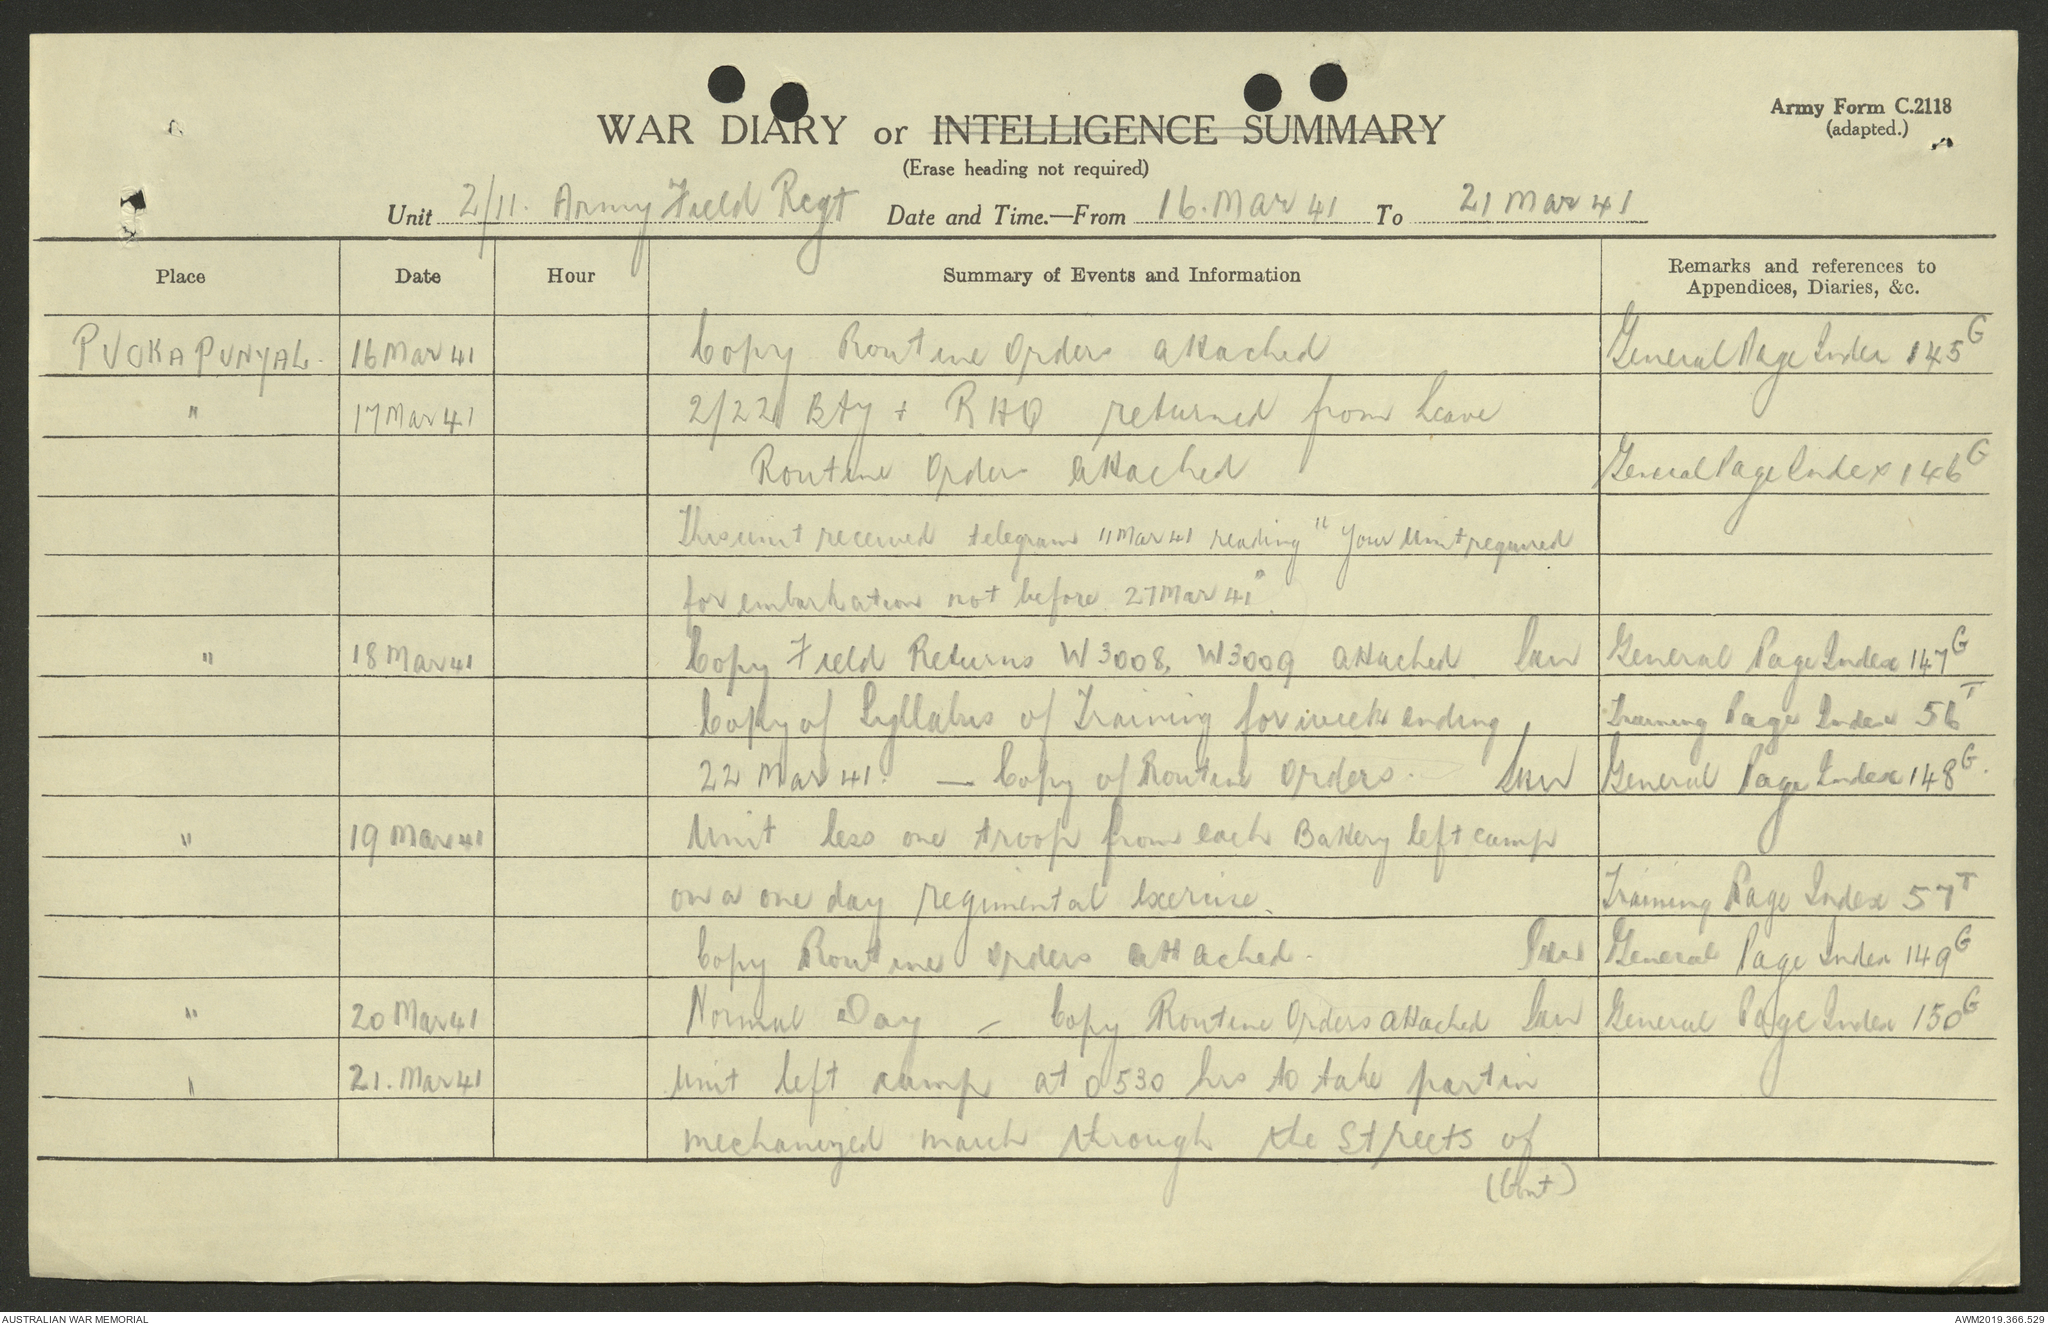 Army Form C.2118
(adapted.)
WAR DIARY or INTELLIGENCE SUMMARY
(Erase heading not required)
Unit 2/11. Army Field Regt Date and Time.—From 16. Mar 41 To 21 Mar 41
Place Date Hour Summary of Events and Information Remarks and references to
Appendices, Diaries, &c.
PUCKAPUNYAL. 16 Mar 41 Copy Routine Orders attached General Page Index 145G
" 17 Mar 41 2/22 Bty + RHQ returned from leave
Routine Orders attached General Page Index 146G
This unit received telegram 11 Mar 41 reading "Your Unit required
for embarkation not before 27 Mar 41".
" 18 Mar 41 Copy Field Returns W3008, W3009 attached General Page Index 147G
Copy of Syllabus of Training for week ending Training Page Index 56T
22 Mar 41. — Copy of Routine Orders. General Page Index 148G.
" 19 Mar 41 Unit less one troop from each Battery left camp
on a one day regimental exercise. Training Page Index 57T
Copy Routine Orders attached. General Page Index 149G
" 20 Mar 41 Normal Day – Copy Routine Orders attached General Page Index 150G
" 21. Mar 41 Unit left camp at 0530 hrs to take part in
mechanized march through the streets of
(Cont)
AUSTRALIAN WAR MEMORIAL AWM2019.366.529